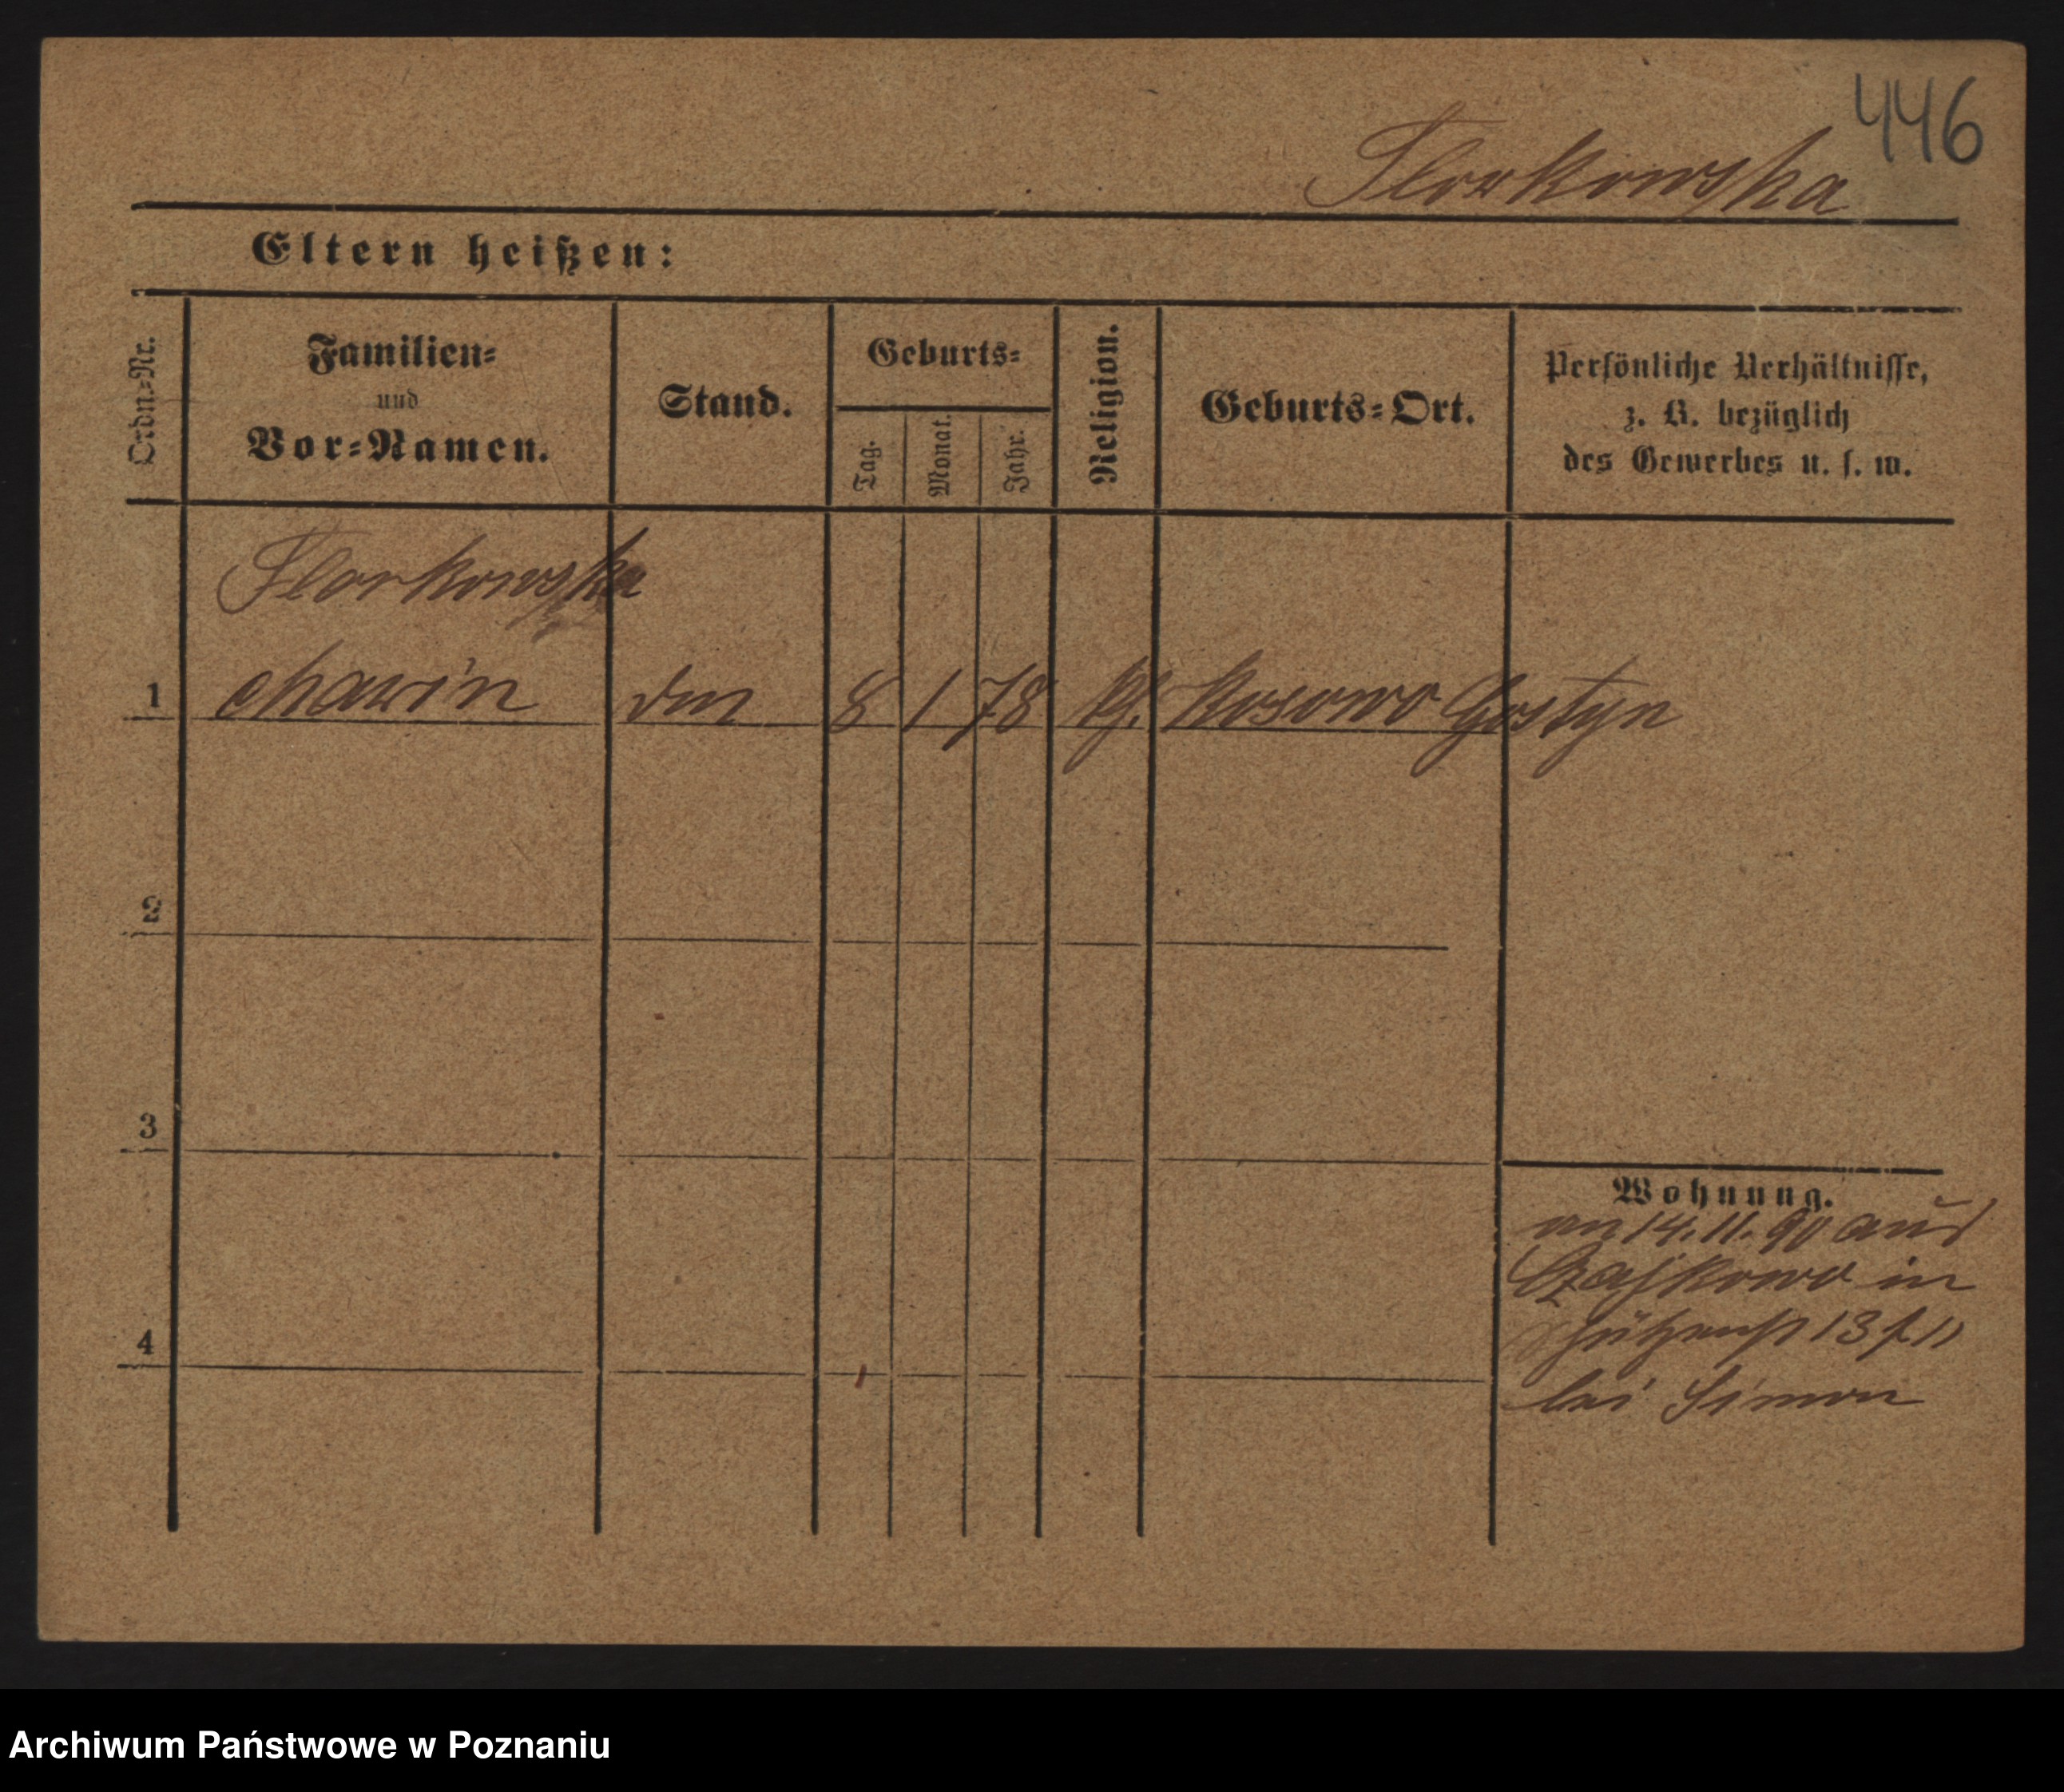 446
Florkowska
Eltern heißen:
Ordn.-Nr.
Familien-
und
Vor-Namen.
Stand.
Geburts-
Tag.
Monat.
Jahr.
Religion.
Geburts-Ort.
Persönliche Verhältnisse,
z. B. bezüglich
des Gewerbes u. s. w.
Florkowska
1 8 1 78 Kosowo Gostyn
2
3
Wohnung.
an 14. 11. 90 aus
in
4
13
bei Simon
Archiwum Państwowe w Poznaniu